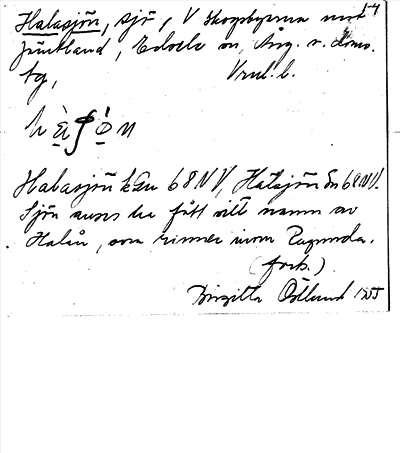 Halasjön, sjö, V Skogsbyarna mot
Jämtland, Edsele sn, Ång. v. doms.
tg,
Halasjön kGu 68 NV, Halsjön En 68 NV.
Sjön anses ha fått sitt namn av
Halån, som rinner inom Ragunda.
(forts.)
Birgitta Östlund